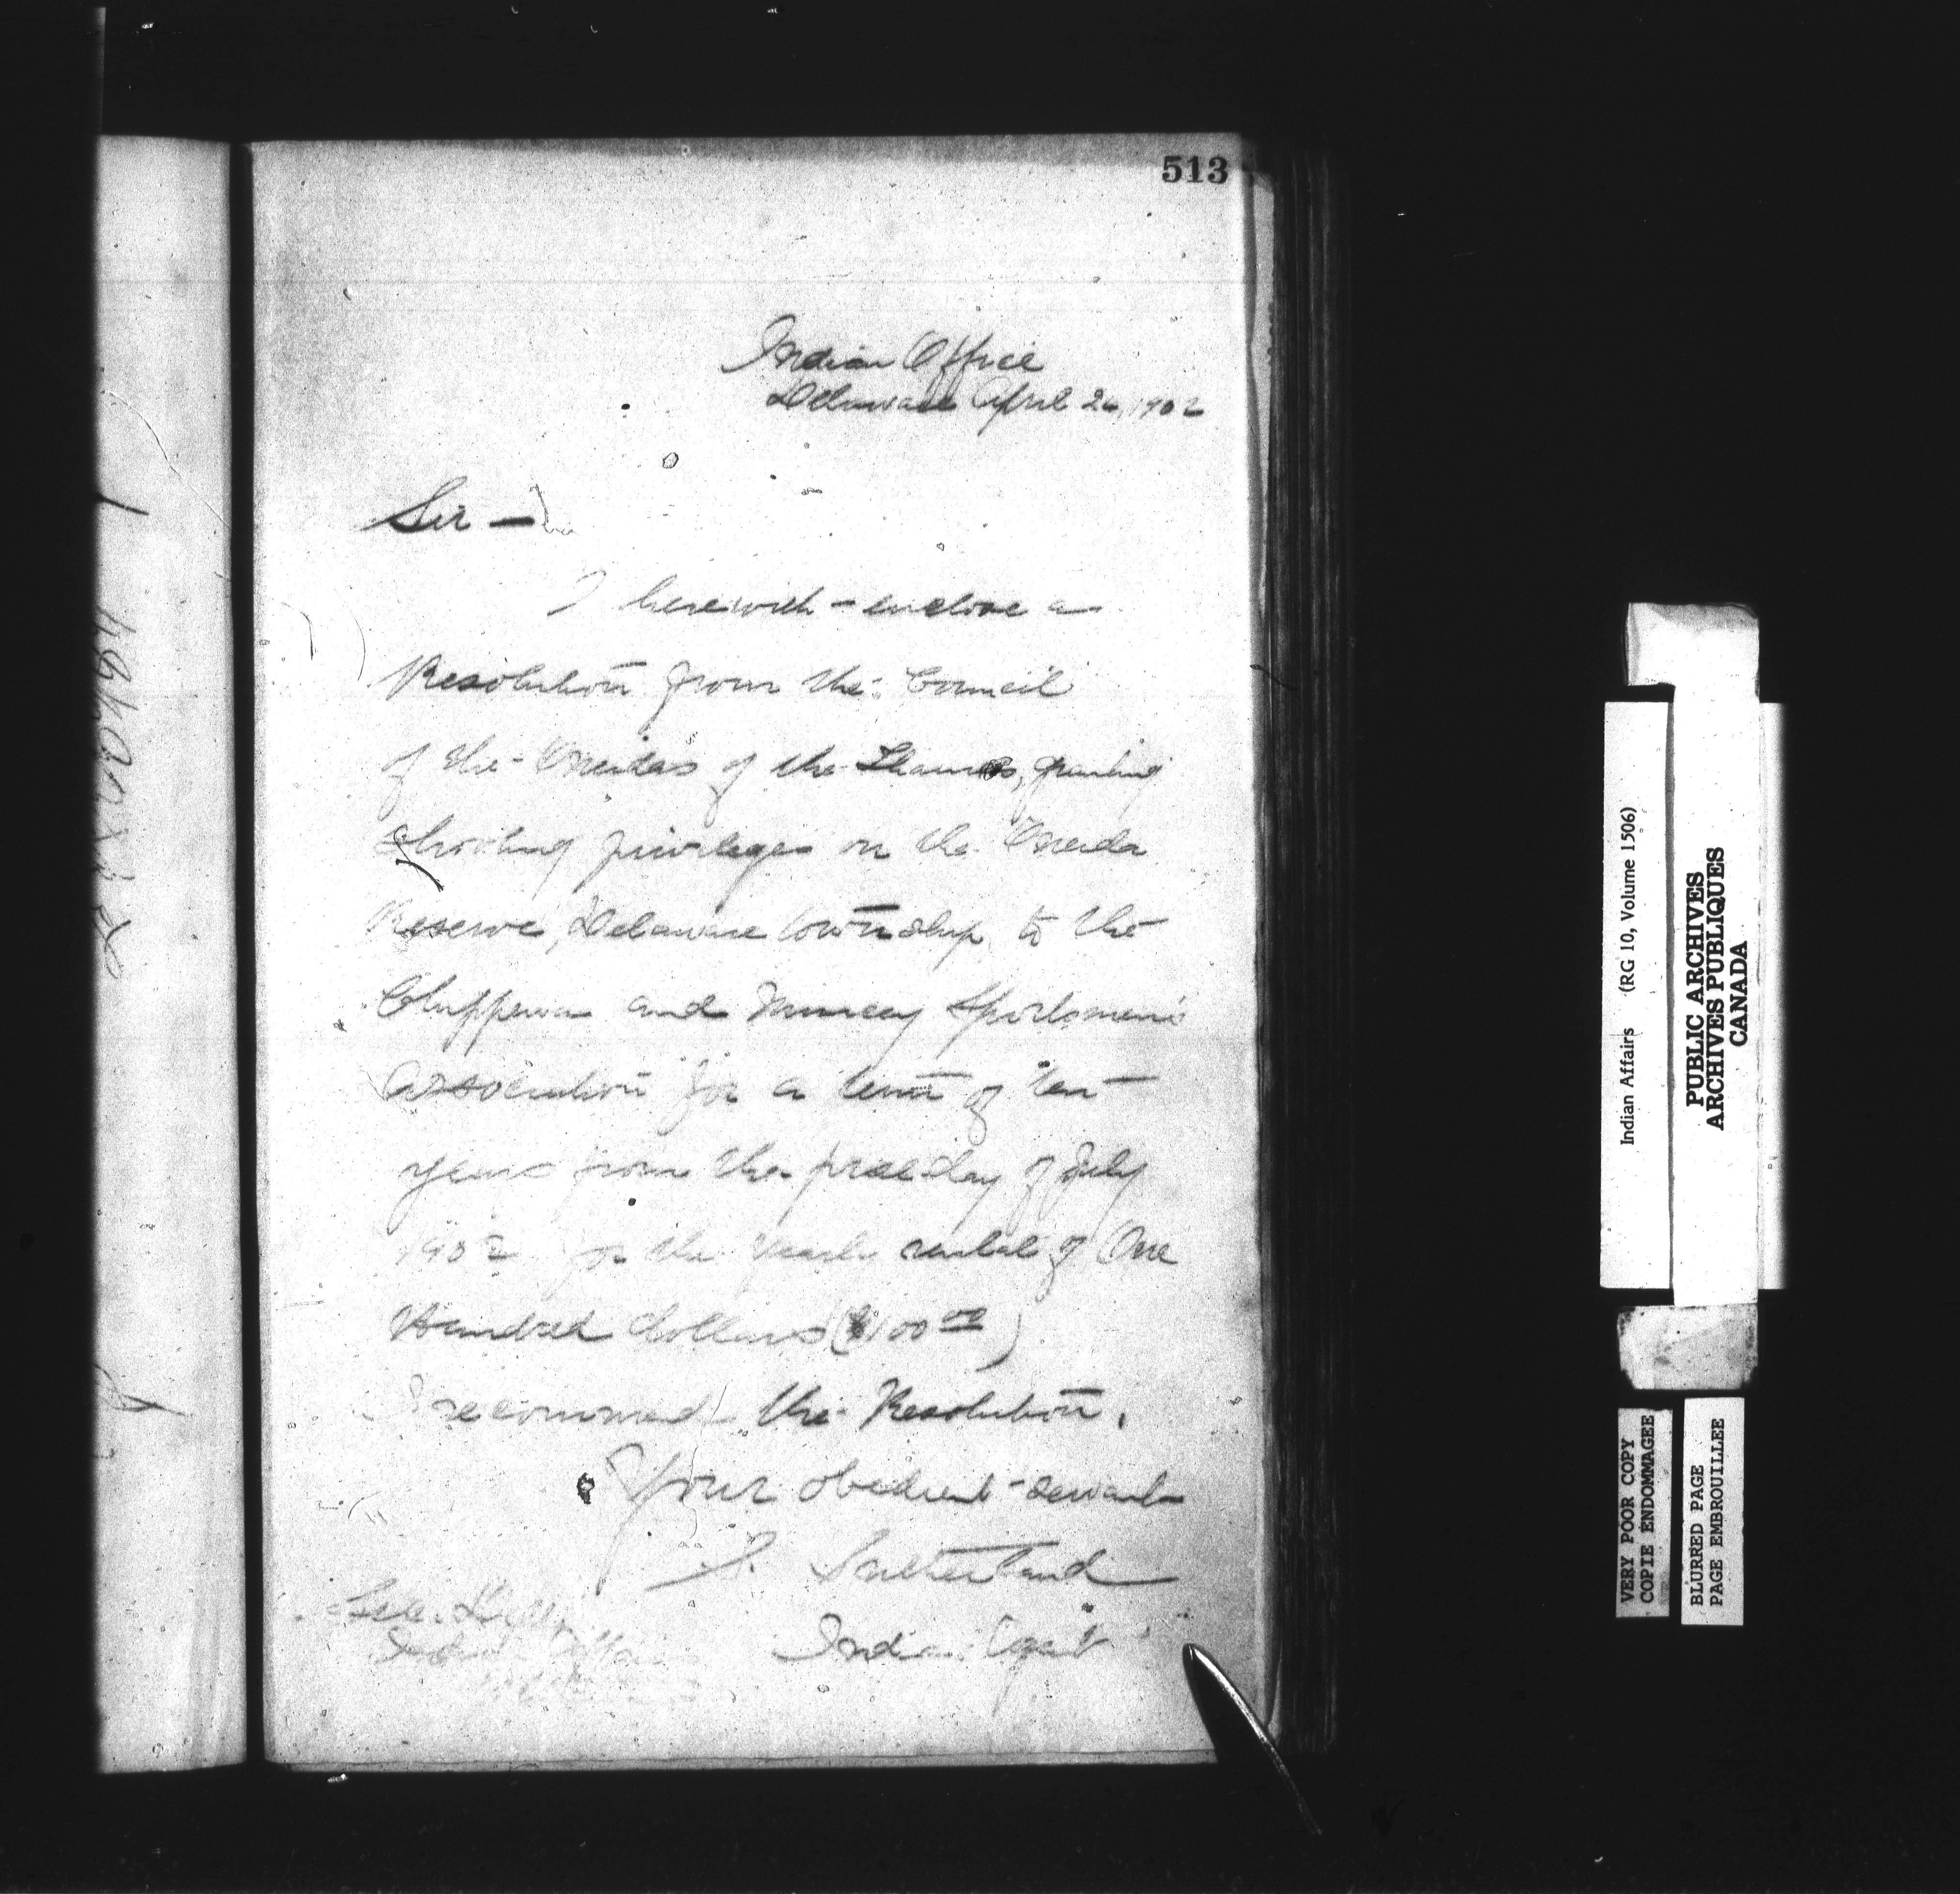 513
Indian Office
Delaware April 26, 1902
Sir —
I herewith - enclose a
Resolution from the Council
of the Oneidas of the Thames, granting
shooting privileges on the Oneida
Reserve, Delaware township, to the
Chippewa and Muncey Sportsmen's
Association for a term of ten
years from the first day of July
1902 for the yearly rental of One
Hundred dollars ($100.00)
I recommend the Resolution.
Your obedient servant
S. Sutherland
Indian Agent
Indian Affairs
Indian Affairs (RG 10, Volume 1506)
PUBLIC ARCHIVES
ARCHIVES PUBLIQUES
CANADA
VERY POOR COPY
COPIE ENDOMMAGEE
BLURRED PAGE
PAGE EMBROUILLEE